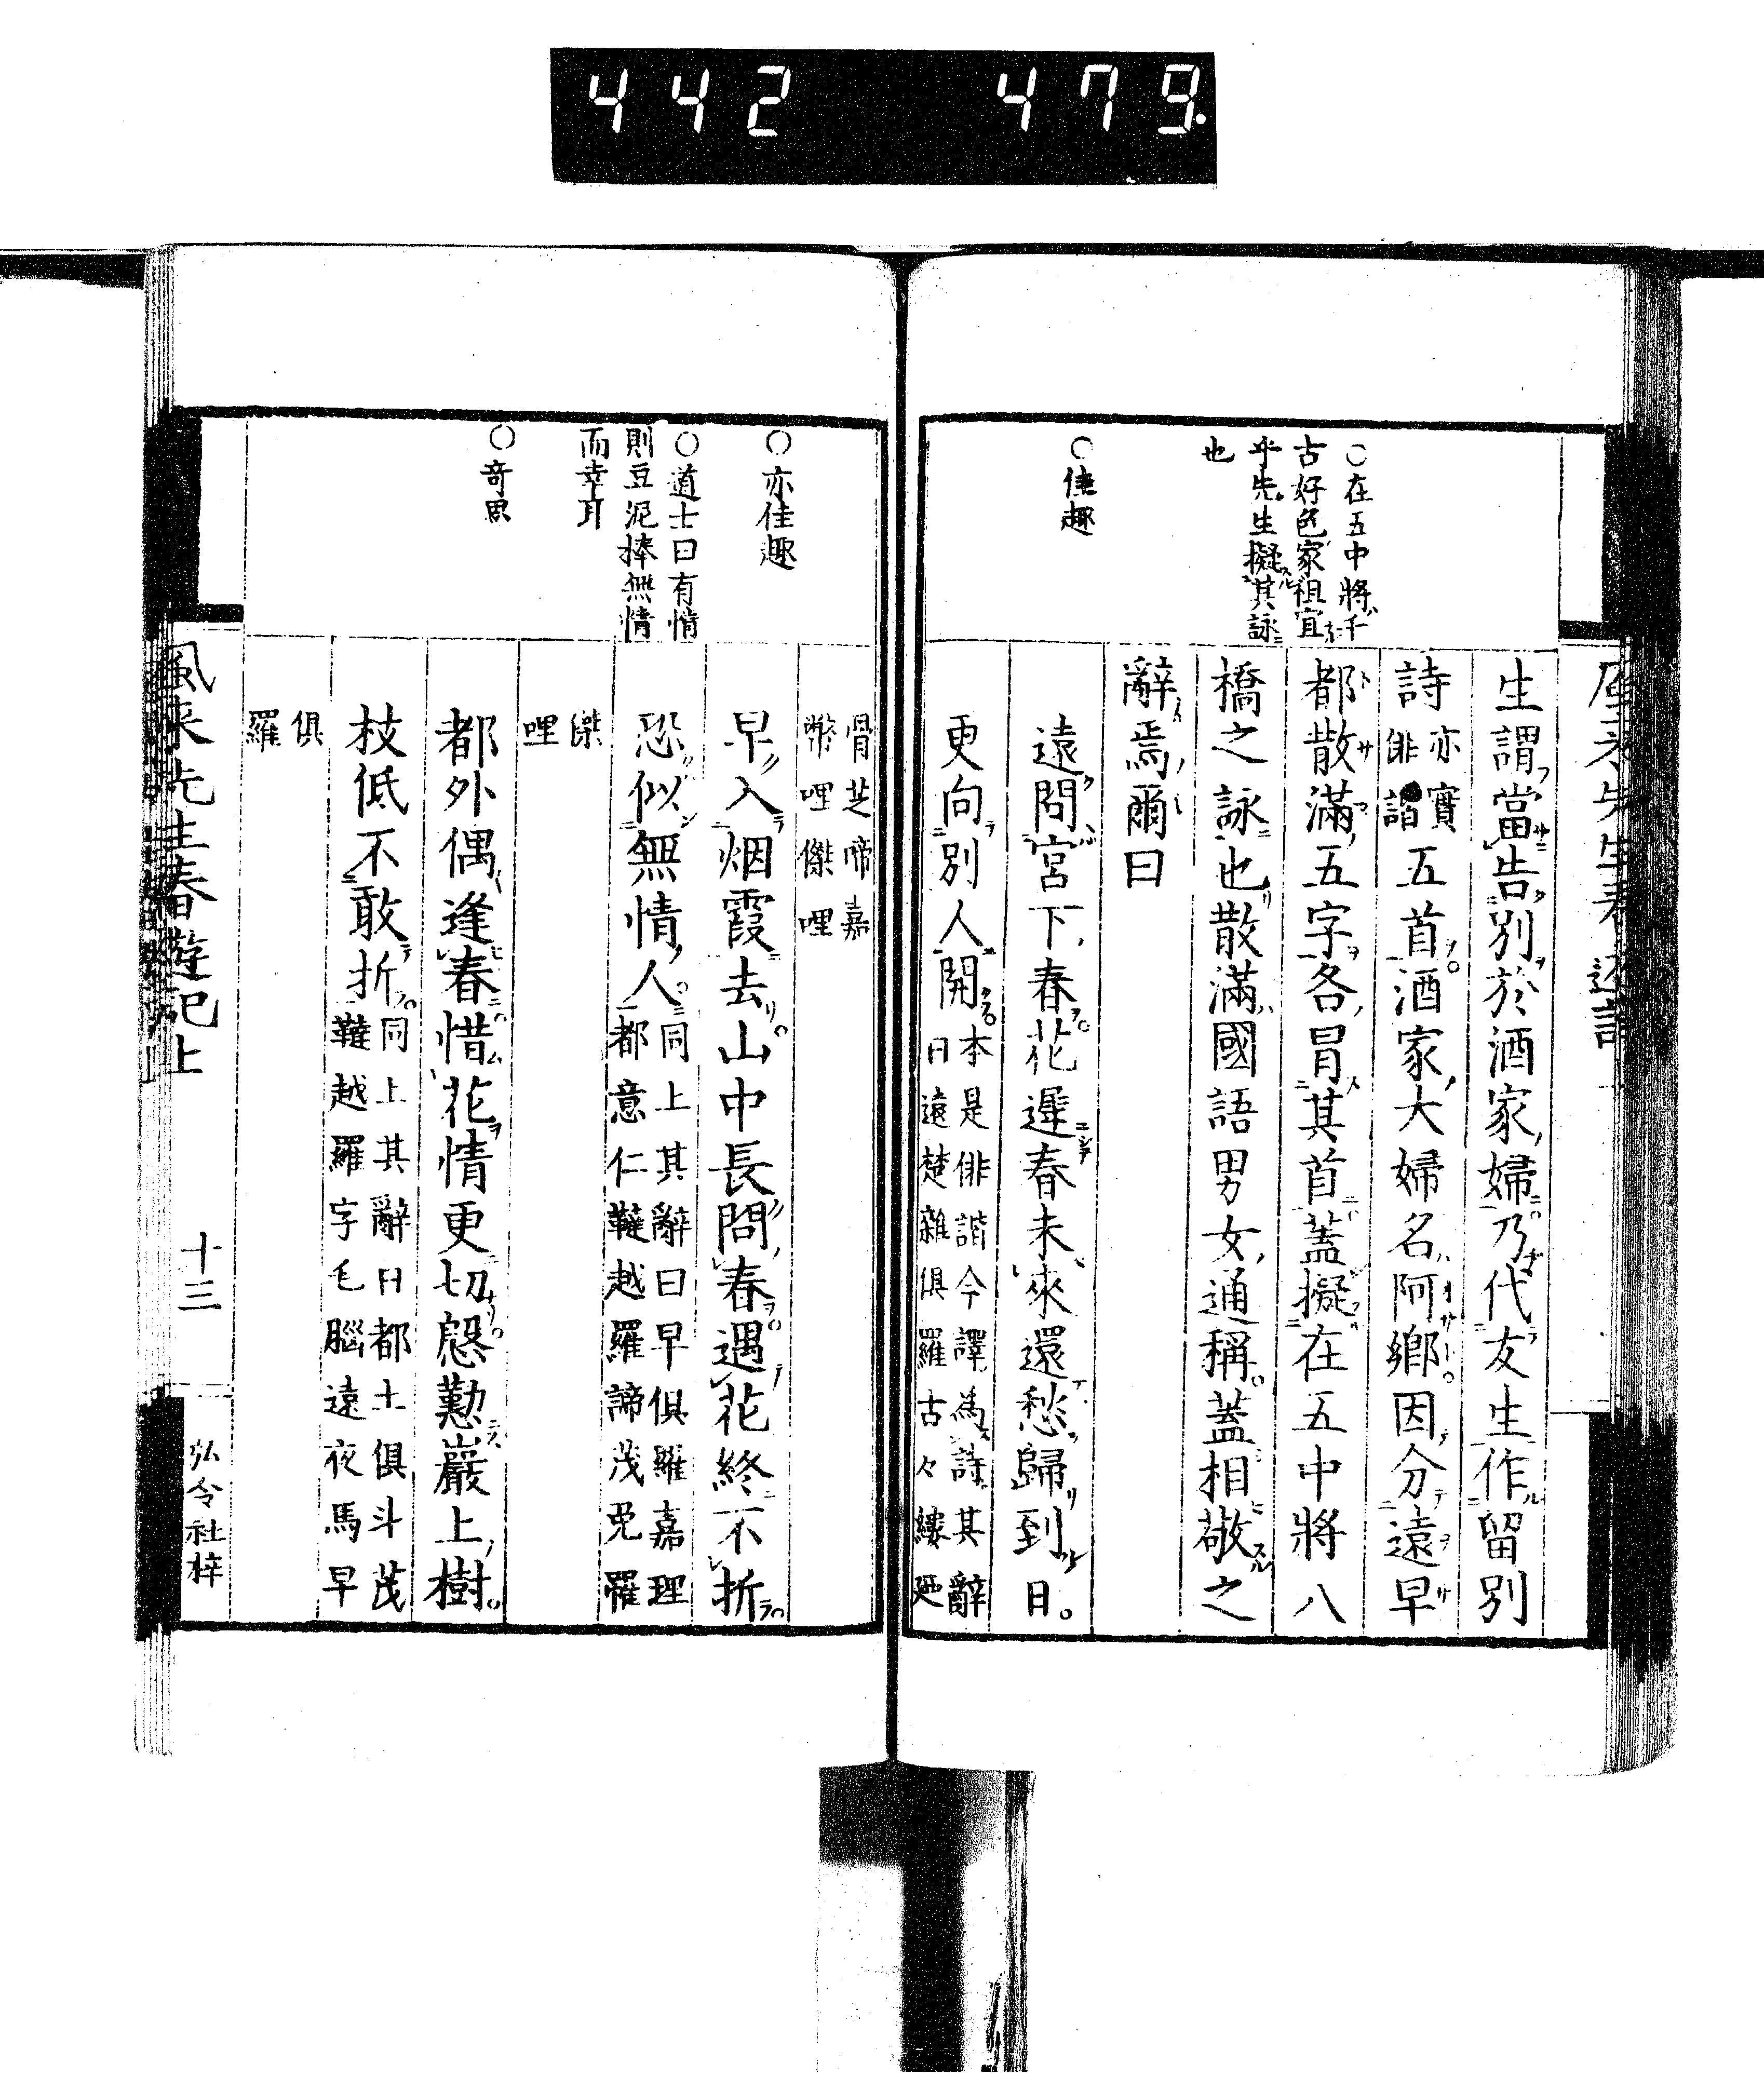 442 479.
○在五中將千
古好色家祖宜
乎先生擬其詠
也
○佳趣
生謂當告別於酒家婦乃代友生作留別
詩亦實俳諧五首酒家大婦名阿鄉因分遠早
都散滿五字各冐其首蓋擬在五中將八
橋之詠也散滿國語男女通稱蓋相敬之
辭焉爾曰
遠問宮下春花遲春未來還愁歸到日
更向別人開本是俳諧今譯爲詩其辭
曰遠楚雜俱羅古々縷廼
○亦佳趣
○道士曰有情
則豆泥捧無情
而幸耳
○奇思
骨芝啼嘉
幣哩傑哩
早入烟霞去山中長問春遇花終不折
恐似無情人同上其辭曰早俱羅嘉理
都意仁韃越羅諦茂免羅
傑
哩
都外偶逢春惜花情更切慇懃巖上樹
枝低不敢折同上其辭曰都土俱斗茂
韃越羅字毛腦遠夜馬早
俱
羅
風来先生春遊記上
十三
弘令社梓